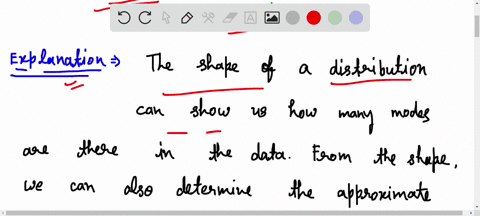 Explanation ⇒ The shape of a distribution
can show us how many modes
are there in the data. From the shape,
we can also determine the approximate